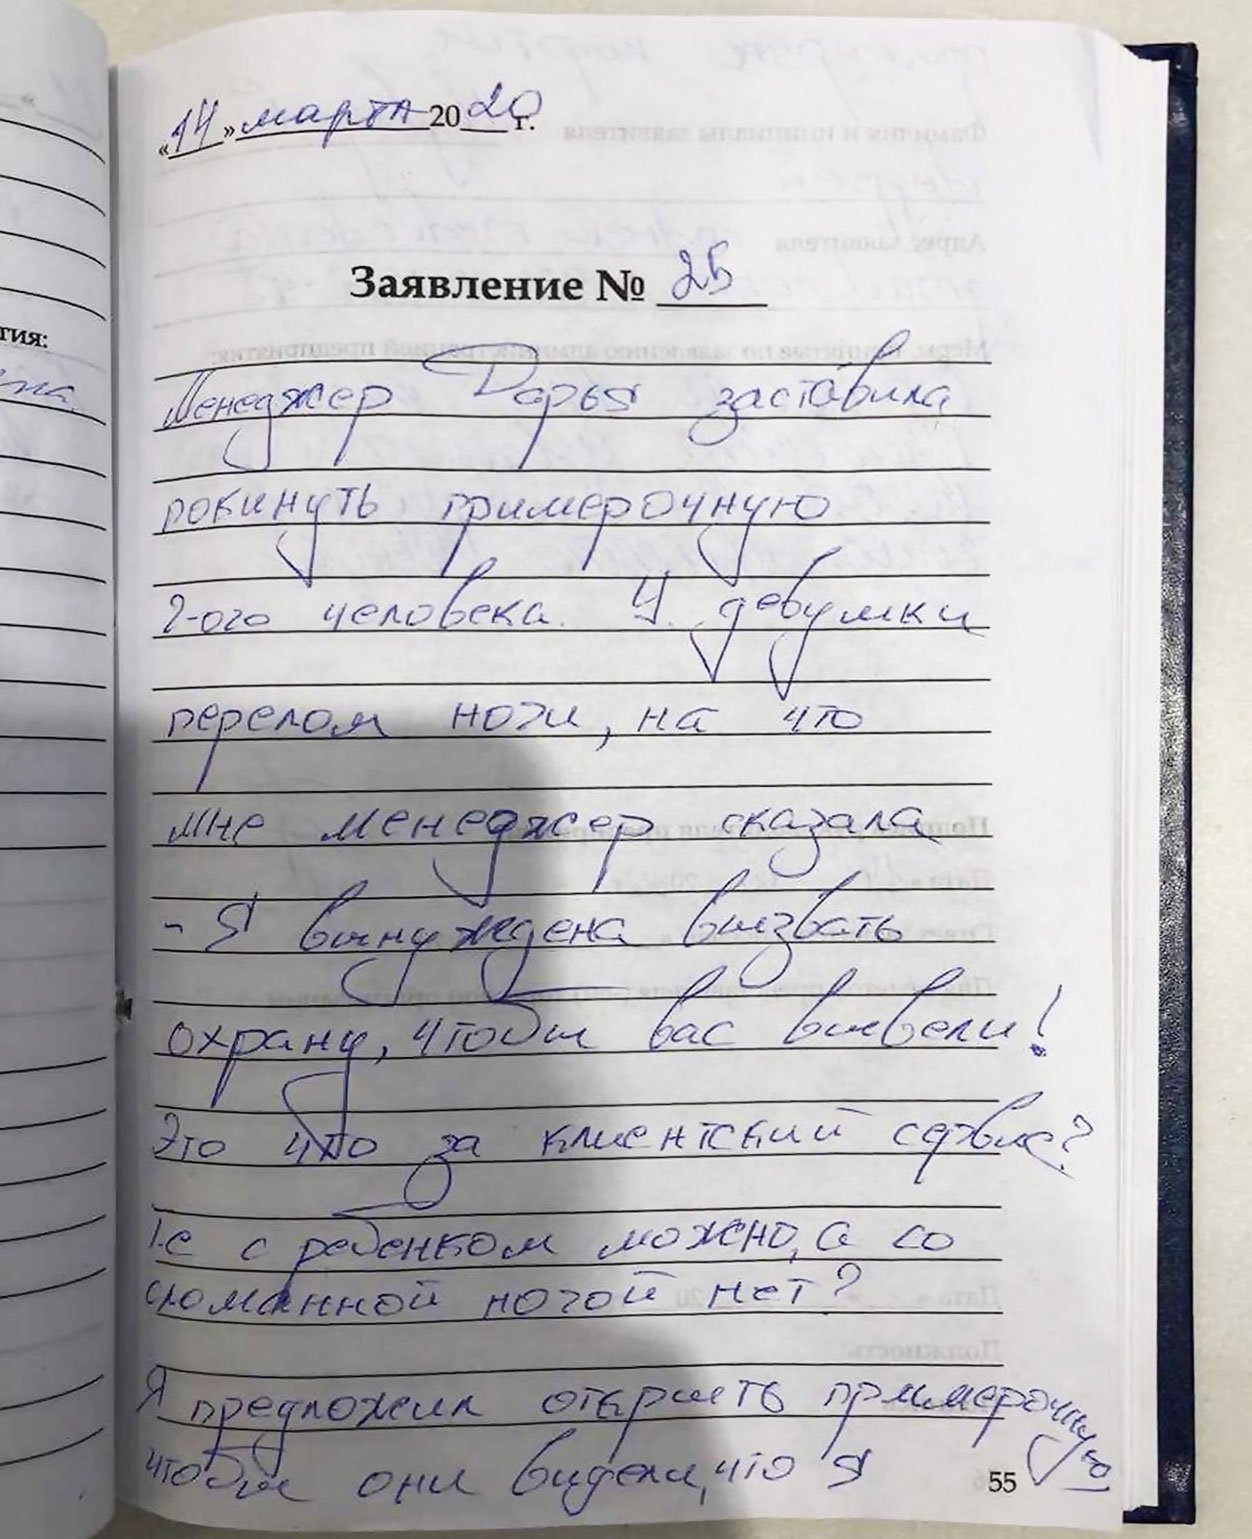 «14» марта 2020 г.
Заявление № 25
тия:
Менеджер Дарья заставила
покинуть примерочную
2-ого человека. У девушки
перелом ноги, на что
мне менеджер сказала
- Я вынуждена вызвать
охрану, чтобы вас вывели!
Это что за клиентский сервис?
Т.е с ребенком можно, а со
сломанной ногой нет?
Я предложил открыть примерочную
чтобы они видели, что я
55